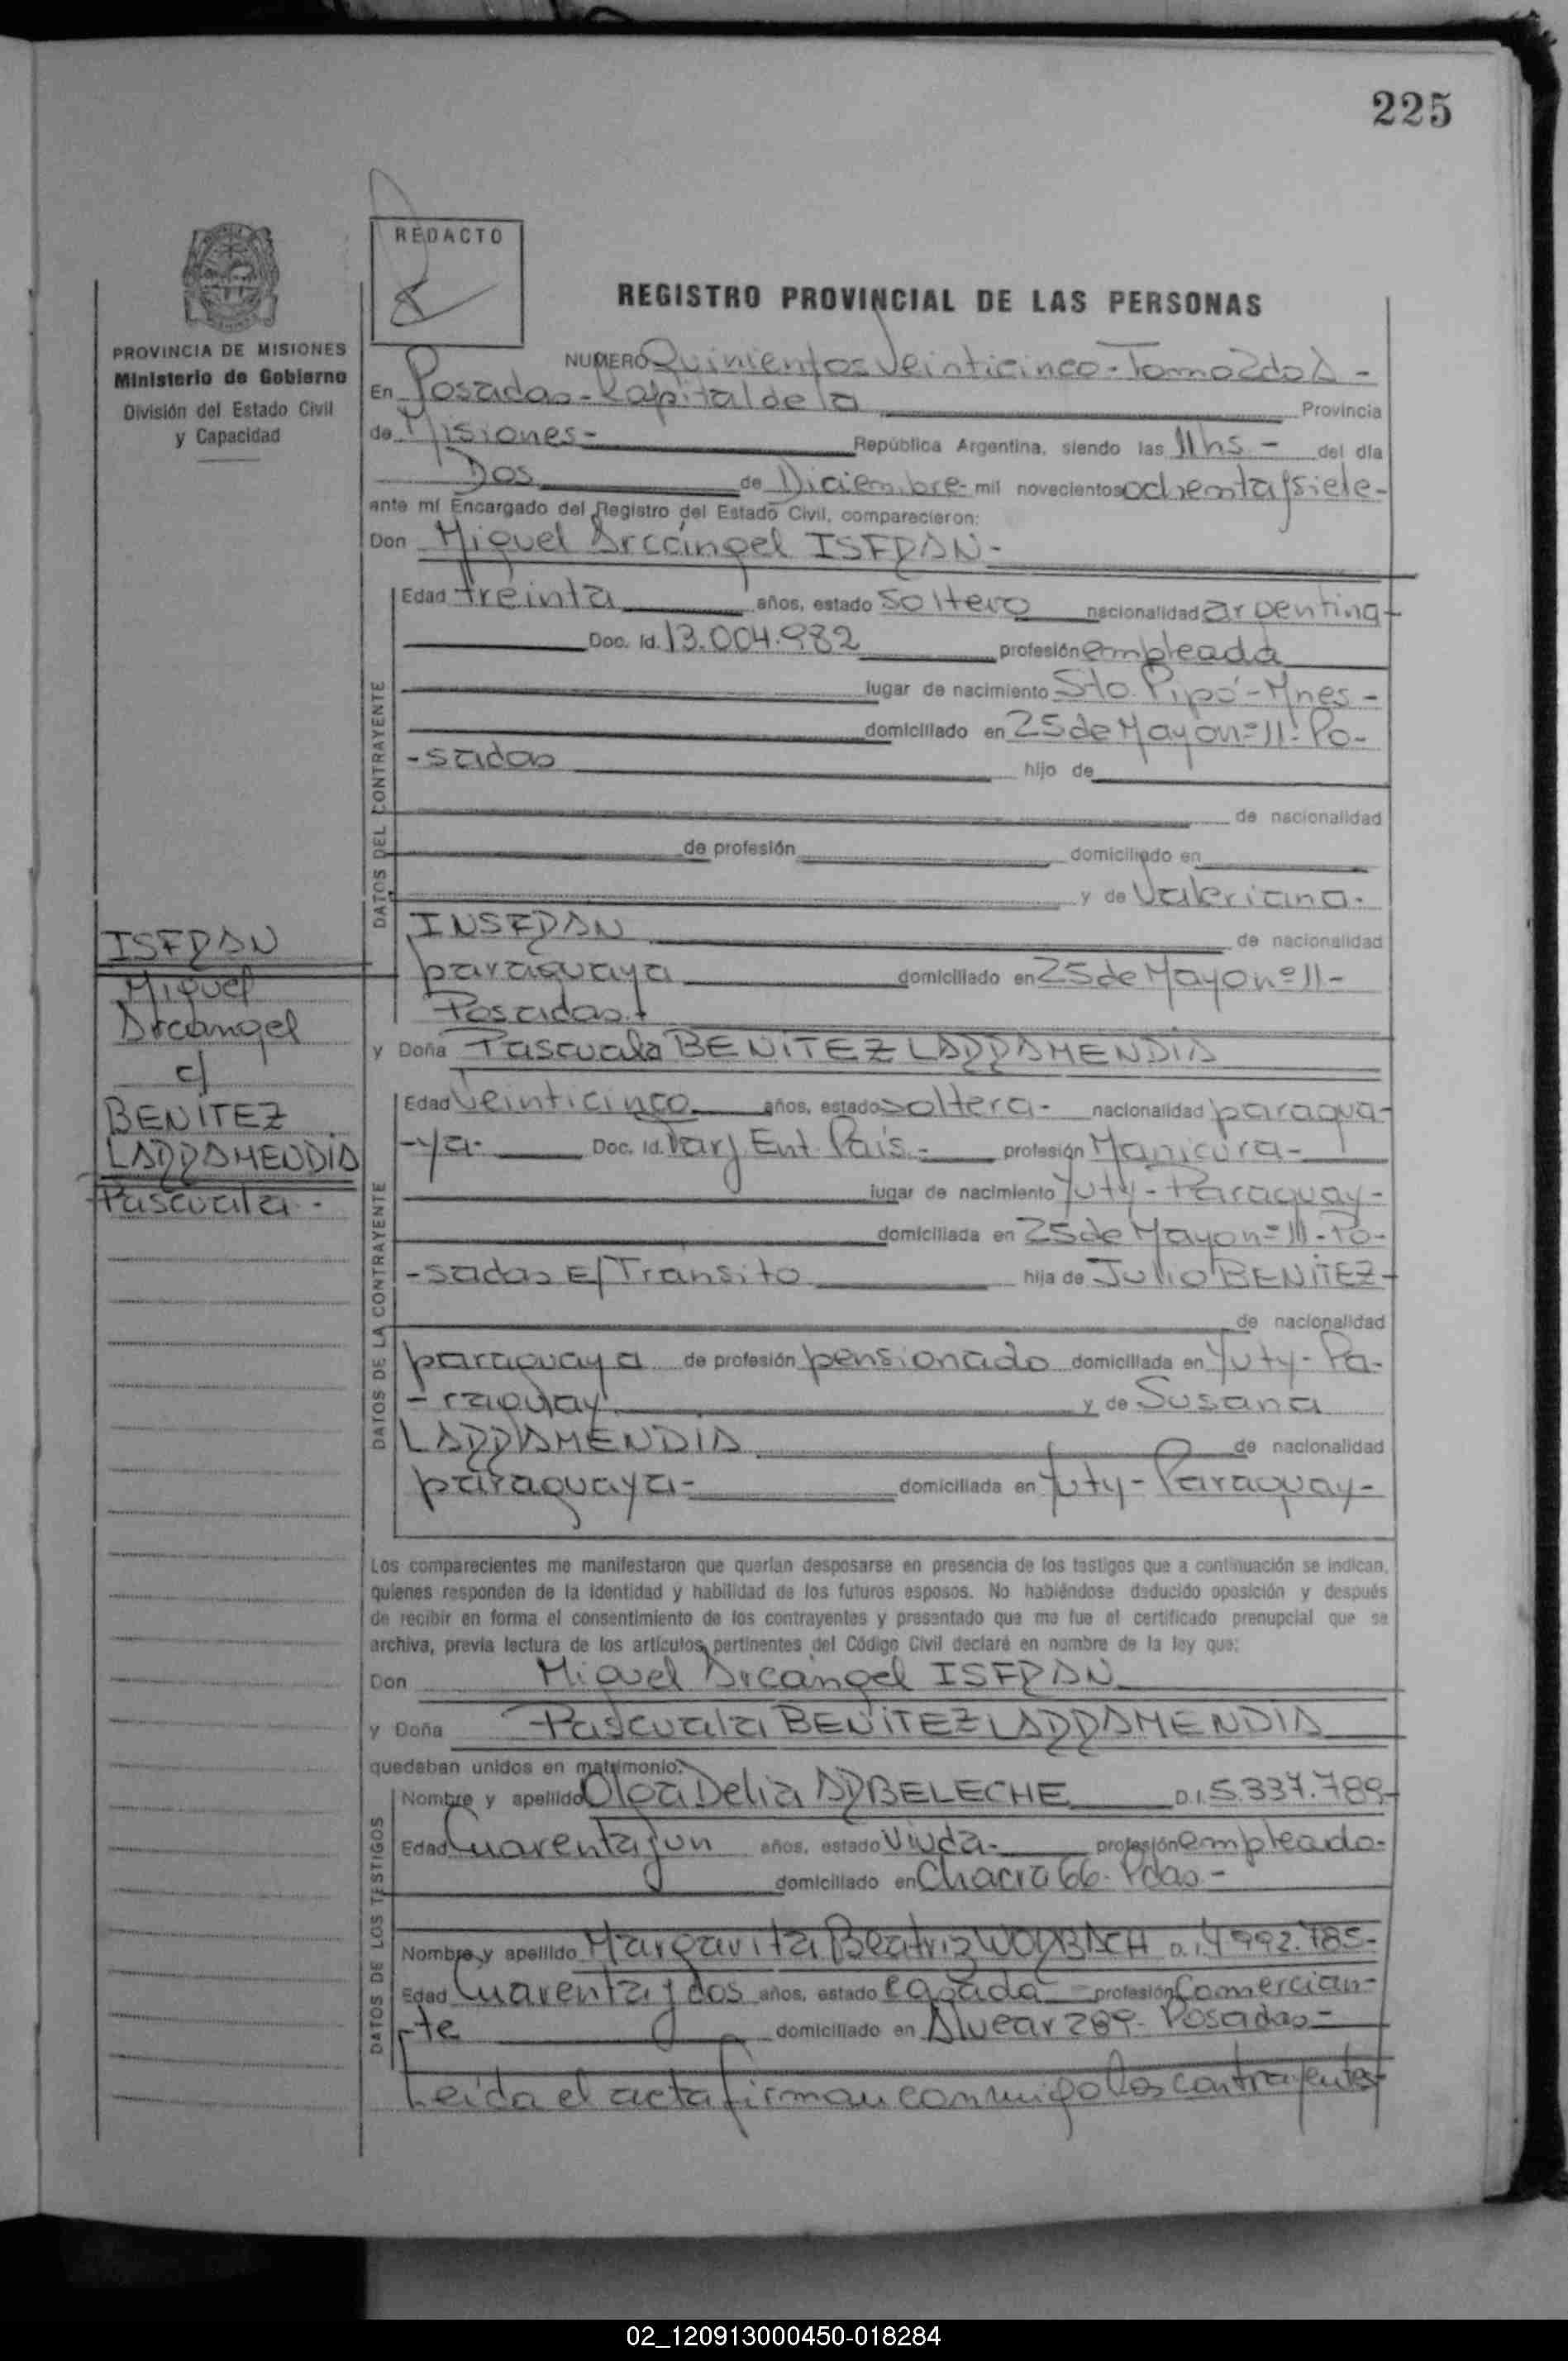 225
REDACTO
REGISTRO PROVINCIAL DE LAS PERSONAS
PROVINCIA DE MISIONES
Ministerio de Gobierno
División del Estado Civil
y Capacidad
NUMERO Quinientos Veinticinco - Tomo 2do A -
En Posadas - Kapital de la Provincia
de Misiones - República Argentina, siendo las 11 hs - del día
Dos de Diciembre - mil novecientos ochenta y siete -
ante mí Encargado del Registro del Estado Civil, comparecieron:
Don Miguel Arcángel ISFRAN -
Edad treinta años, estado soltero nacionalidad argentina -
Doc. Id. 13.004.982 profesión empleada
lugar de nacimiento Sto. Pipó - Mnes -
domiciliado en 25 de Mayo n=11 - Po-
- sadas hijo de
de nacionalidad
de profesión domiciliado en
y de Valeriana -
INSFRAN de nacionalidad
paraguaya domiciliado en 25 de Mayo nº 11 -
Posadas -
y Doña Pascuala BENITEZ LARRAMENDIA
Edad Veinticinco años, estado soltera - nacionalidad paragua-
- ya - Doc. Id. Tarj Ent. País - profesión Manicura -
lugar de nacimiento Yuty - Paraguay -
domiciliada en 25 de Mayo n=111 - Po-
- sadas E/Transito hija de Julio BENITEZ -
de nacionalidad
paraguaya de profesión pensionado domiciliada en Yuty - Pa-
- raguay y de Susana
LARRAMENDIA de nacionalidad
paraguaya - domiciliada en Yuty - Paraguay -
DATOS DEL CONTRAYENTE
DATOS DE LA CONTRAYENTE
ISFRAN
Miguel
Arcángel
c/
BENITEZ
LARRAMENDIA
Pascuala -
Los comparecientes me manifestaron que querían desposarse en presencia de los testigos que a continuación se indican,
quienes responden de la identidad y habilidad de los futuros esposos. No habiéndose deducido oposición y después
de recibir en forma el consentimiento de los contrayentes y presentado que me fue el certificado prenupcial que se
archiva, previa lectura de los artículos pertinentes del Código Civil declaré en nombre de la ley que:
Don Miguel Arcángel ISFRAN
y Doña Pascuala BENITEZ LARRAMENDIA
quedaban unidos en matrimonio.
Nombre y apellido Olga Delia ARBELECHE D.I. 5.337.789 -
Edad Cuarenta y un años, estado Viuda - profesión empleado -
domiciliado en Chacra 66 - Pdas -
Nombre y apellido Margarita Beatriz WORBACH D.I. 4 992.785 -
Edad Cuarenta y dos años, estado casada - profesión Comercian-
- te domiciliado en Alvear 289 - Posadas -
DATOS DE LOS TESTIGOS
Leída el acta firman conmigo los contrayentes
02_120913000450-018284